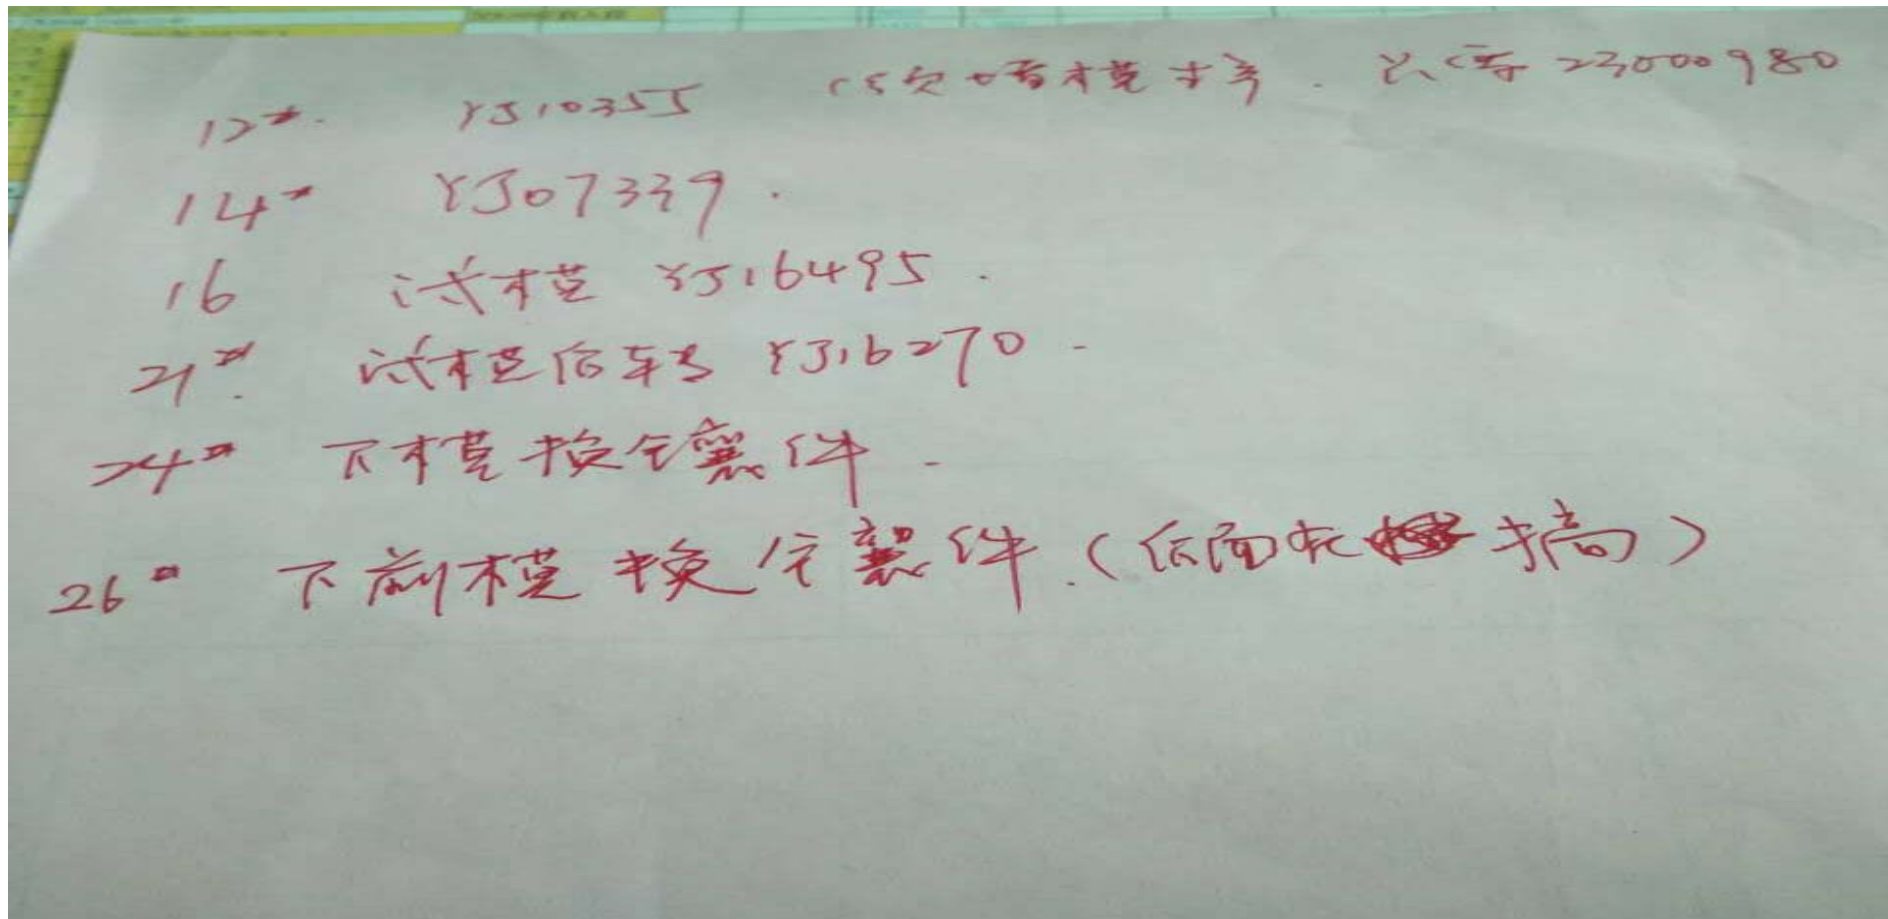 12# YJ10355 模 23000980
14# YJ07339.
16 试模 YJ16495.
21# 试模后转 YJ16270.
24# 下模换镶件.
26# 下前模换镶件.(后面在 搞)